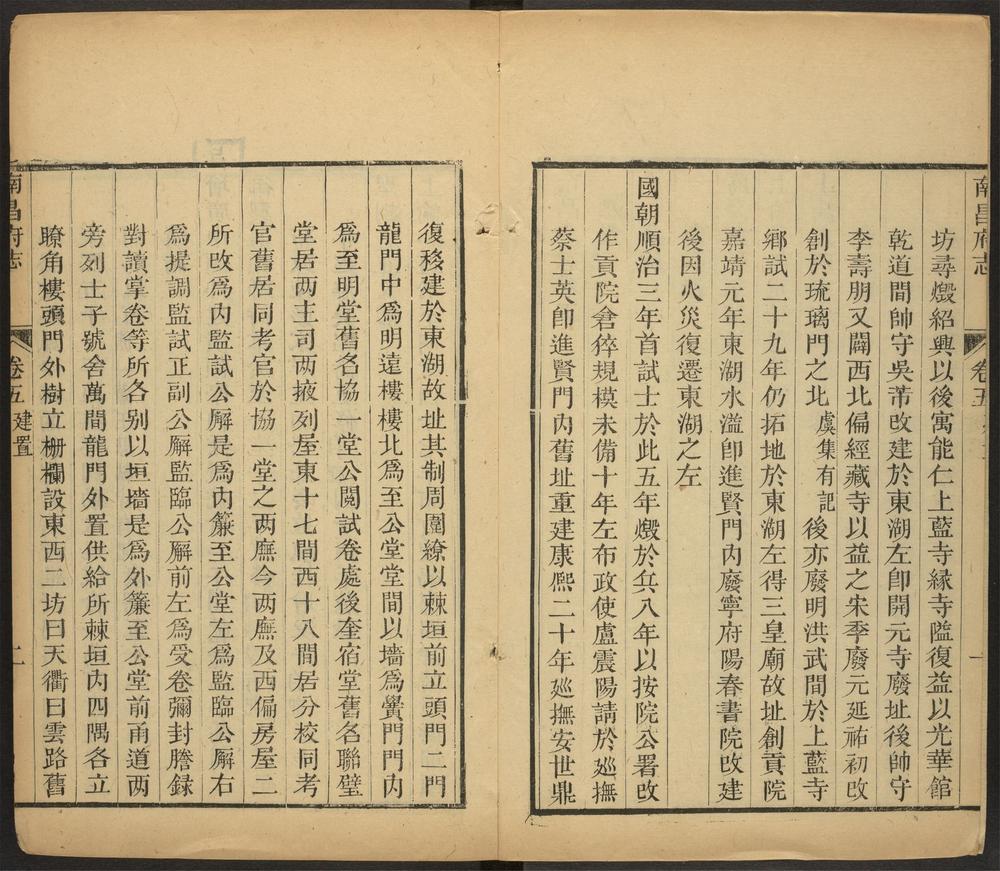 南昌府志 卷五
坊尋燬紹興以後寓能仁上藍寺緣寺隘復益以光華館
乾道間帥守吳芾改建於東湖左卽開元寺廢址後帥守
李壽朋又闢西北偏經藏寺以益之宋季廢元延祐初改
創於琉璃門之北虞集有記後亦廢明洪武間於上藍寺
鄉試二十九年仍拓地於東湖左得三皇廟故址創貢院
嘉靖元年東湖水溢卽進賢門內廢寧府陽春書院改建
後因火災復遷東湖之左
國朝順治三年首試士於此五年燬於兵八年以按院公署改
作貢院倉猝規模未備十年左布政使盧震陽請於廵撫
蔡士英卽進賢門內舊址重建康熈二十年廵撫安世鼎
復移建於東湖故址其制周圍繚以棘垣前立頭門二門
龍門中爲明遠樓樓北爲至公堂堂間以墻爲黌門門內
爲至明堂舊名協一堂公閱試卷處後奎宿堂舊名聯璧
堂居两主司两掖列屋東十七間西十八間居分校同考
官舊居同考官於協一堂之两廡今两廡及西偏房屋二
所改爲內監試公廨是爲內簾至公堂左爲監臨公廨右
爲提調監試正副公廨監臨公廨前左爲受卷彌封謄録
對讀掌卷等所各别以垣墻是爲外簾至公堂前甬道两
旁列士子號舍萬間龍門外置供給所棘垣內四隅各立
瞭角樓頭門外樹立栅欄設東西二坊曰天衢曰雲路舊
南昌府志 卷五 建置 二